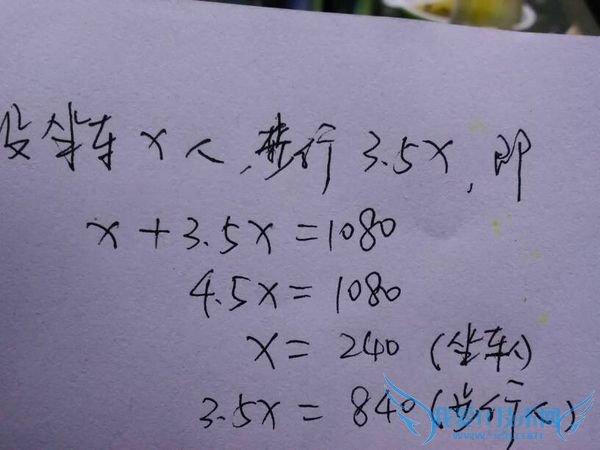 设坐车x人,步行3.5x,即
x+3.5x=1080
4.5x=1080
x=240 (坐车人)
3.5x=840 (步行人)